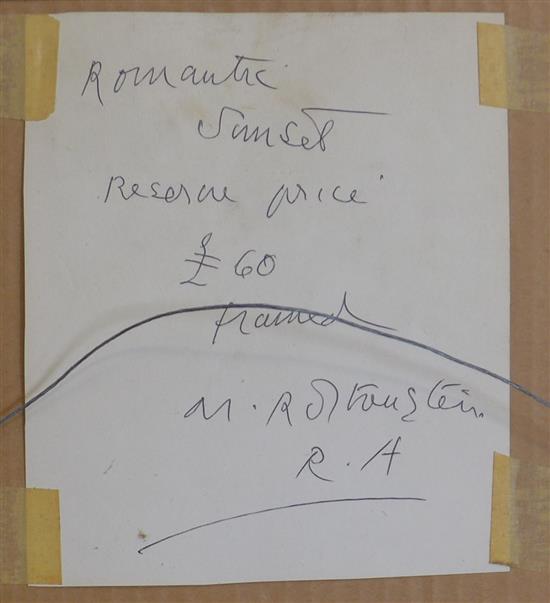 Romantic
Sunset
Reserve price
£60
framed
M. Rothenstein
R.A